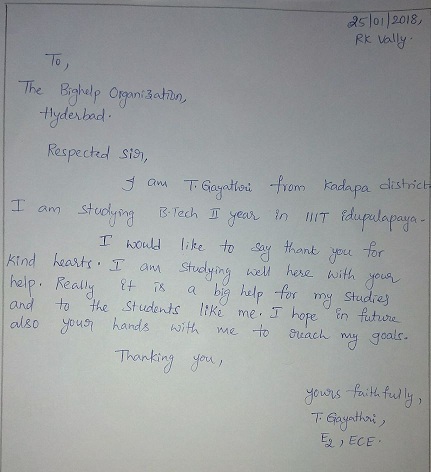 25/01/2018,
RK Vally.
To,
The Bighelp Organization,
Hyderbad.
Respected sir,
I am T. Gayathri from Kadapa district
I am studying B.Tech II year in IIIT Idupalapaya.
I would like to say thank you for
kind hearts. I am studying well here with your
help. Really it is a big help for my studies
and to the students like me. I hope in future
also your hands with me to reach my goals.
Thanking you,
yours faithfully,
T. Gayathri,
E2, ECE.